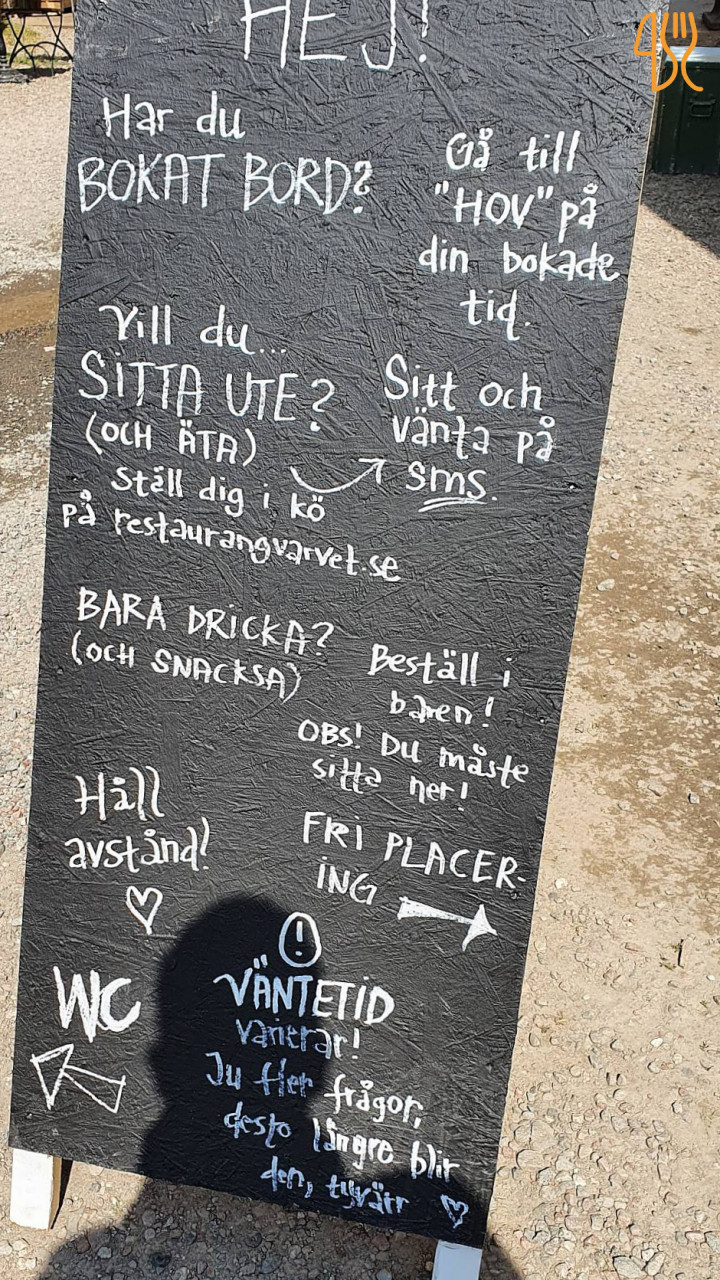 HEJ!
Har du
BOKAT BORD?
Gå till
"HOV" på
din bokade
tid.
Vill du...
SITTA UTE?
(OCH ÄTA)
Ställ dig i kö
på restaurangvarvet.se
Sitt och
vänta på
sms.
BARA DRICKA?
(OCH SNACKSA)
Beställ i
baren!
OBS! Du måste
sitta ner!
Håll
avstånd!
FRI PLACER-
ING
WC
!
VÄNTETID
varierar!
Ju fler frågor,
desto längre blir
den, tyvärr